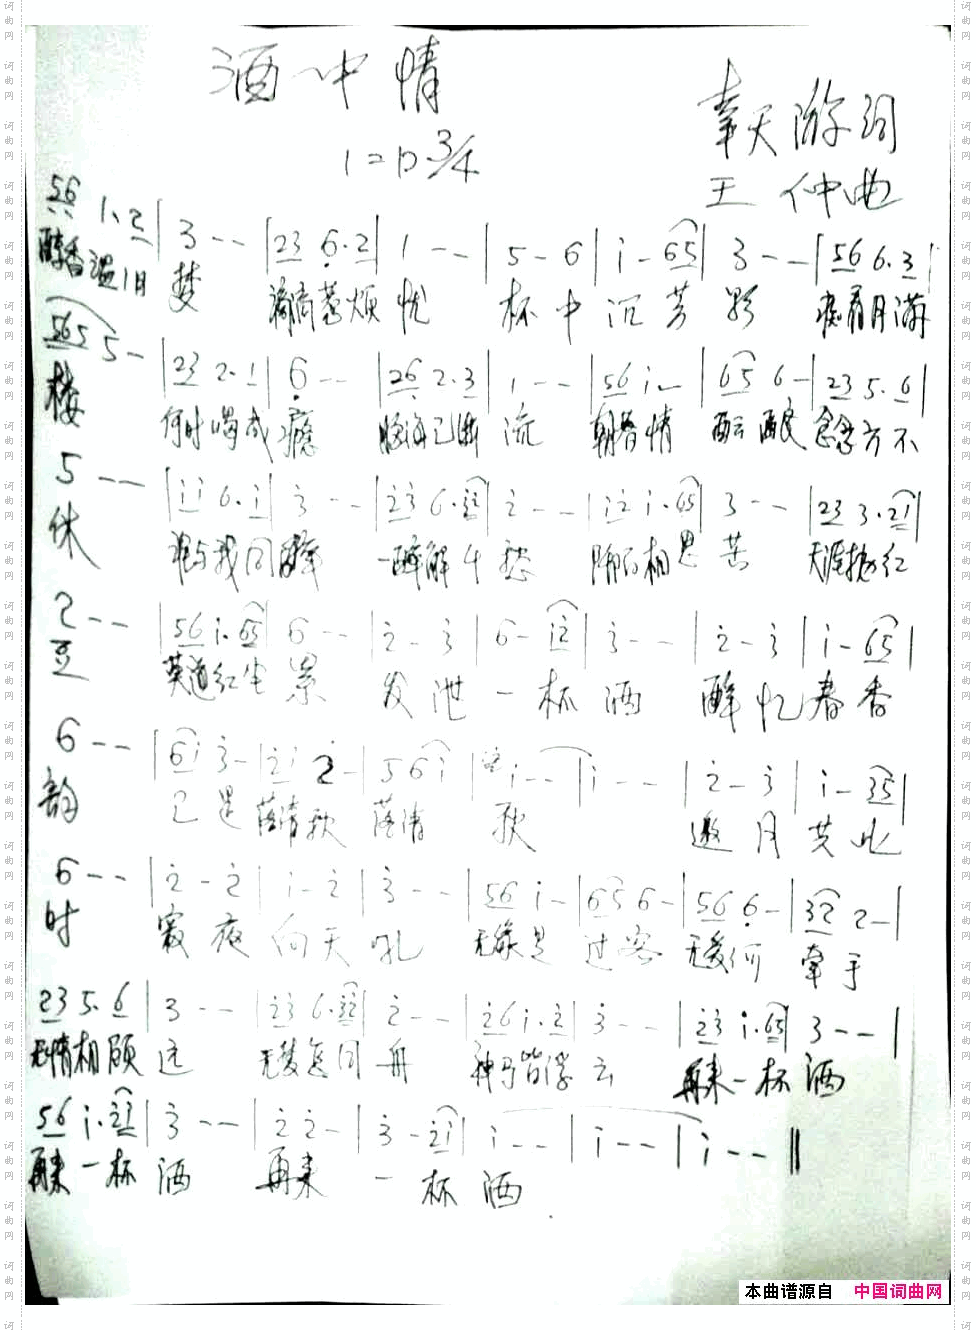 酒中情
1=D 3/4
奉天游词
王 仲曲
56 1.2 | 3 -- | 23 6.2 | 1 -- | 5-6 | i-65 | 3 -- | 56 6.3 |
醇香温旧 梦 烦 忧 杯中 沉芳 影 月满
565 5- | 23 2.1 | 6 -- | 26 2.3 | 1 -- | 56 i- | 65 6- | 23 5.6 |
楼 何时喝成 瘾 已断 流 朝暮情 酝酿 方不
5 -- | ii 6.i | 3 -- | 23 6.32 | 2 -- | i2 i.65 | 3 -- | 23 3.21 |
休 谁与我同醉 一醉解千 愁 相思 苦 天涯 红
2 -- | 56 i.65 | 6 -- | 2-3 | 6-i2 | 3 -- | 2-3 | i-65 |
豆 莫道红尘 累 发泄 一杯 酒 醉忆 春香
6 -- | 6i 3- | 2i 2- | 5 6i | i -- | i -- | 2-3 | i-35 |
韵 已是 落清秋 落清 秋 邀月 共此
6 -- | 2-2 | i-2 | 3 -- | 56 i- | 65 6- | 56 6- | 32 2- |
时 寂夜 问天 吼 无缘是 过客 无爱何 牵手
23 5.6 | 3 -- | 23 6.32 | 2 -- | 26 i.2 | 3 -- | 23 i.65 | 3 -- |
无情相顾 远 无梦怎同 舟 神马皆浮 云 再来一杯 酒
56 i.21 | 3 -- | 22 2- | 3-2i | i -- | i -- | i -- ‖
再来一杯 酒 再来 一杯 酒
本曲谱源自 中国词曲网